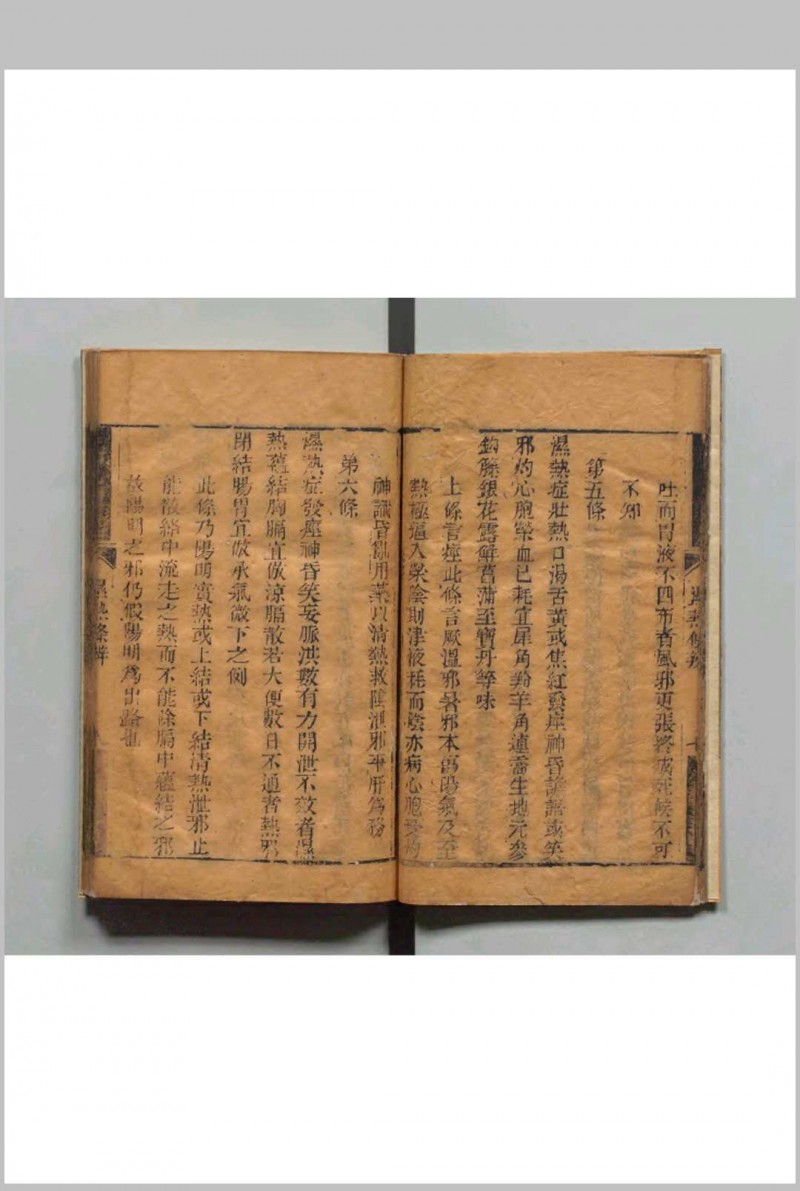 吐而胃液不四布者風邪更張終成死候不可
不知
第五條
濕熱症壯熱口渴舌黃或焦紅發痙神昏譫語或笑
邪灼心胞榮血已耗宜犀角羚羊角連喬生地元參
鈎藤銀花露鮮菖蒲至寶丹等味
上條言痙此條言厥溫邪暑邪本傷陽氣及至
熱極逼入榮陰則津液耗而陰亦病心胞受灼
神識昏亂用藥以清熱救陰泄邪平肝爲務
第六條
濕熱症發痙神昏笑妄脈洪數有力開泄不效者濕
熱蘊結胸膈宜倣涼膈散若大便數日不通者熱邪
閉結腸胃宜倣承氣微下之例
此條乃陽明實熱或上結或下結清熱泄邪止
能散絡中流走之熱而不能除膈中蘊結之邪
故陽明之邪仍假陽明爲出路也
濕熱條辨